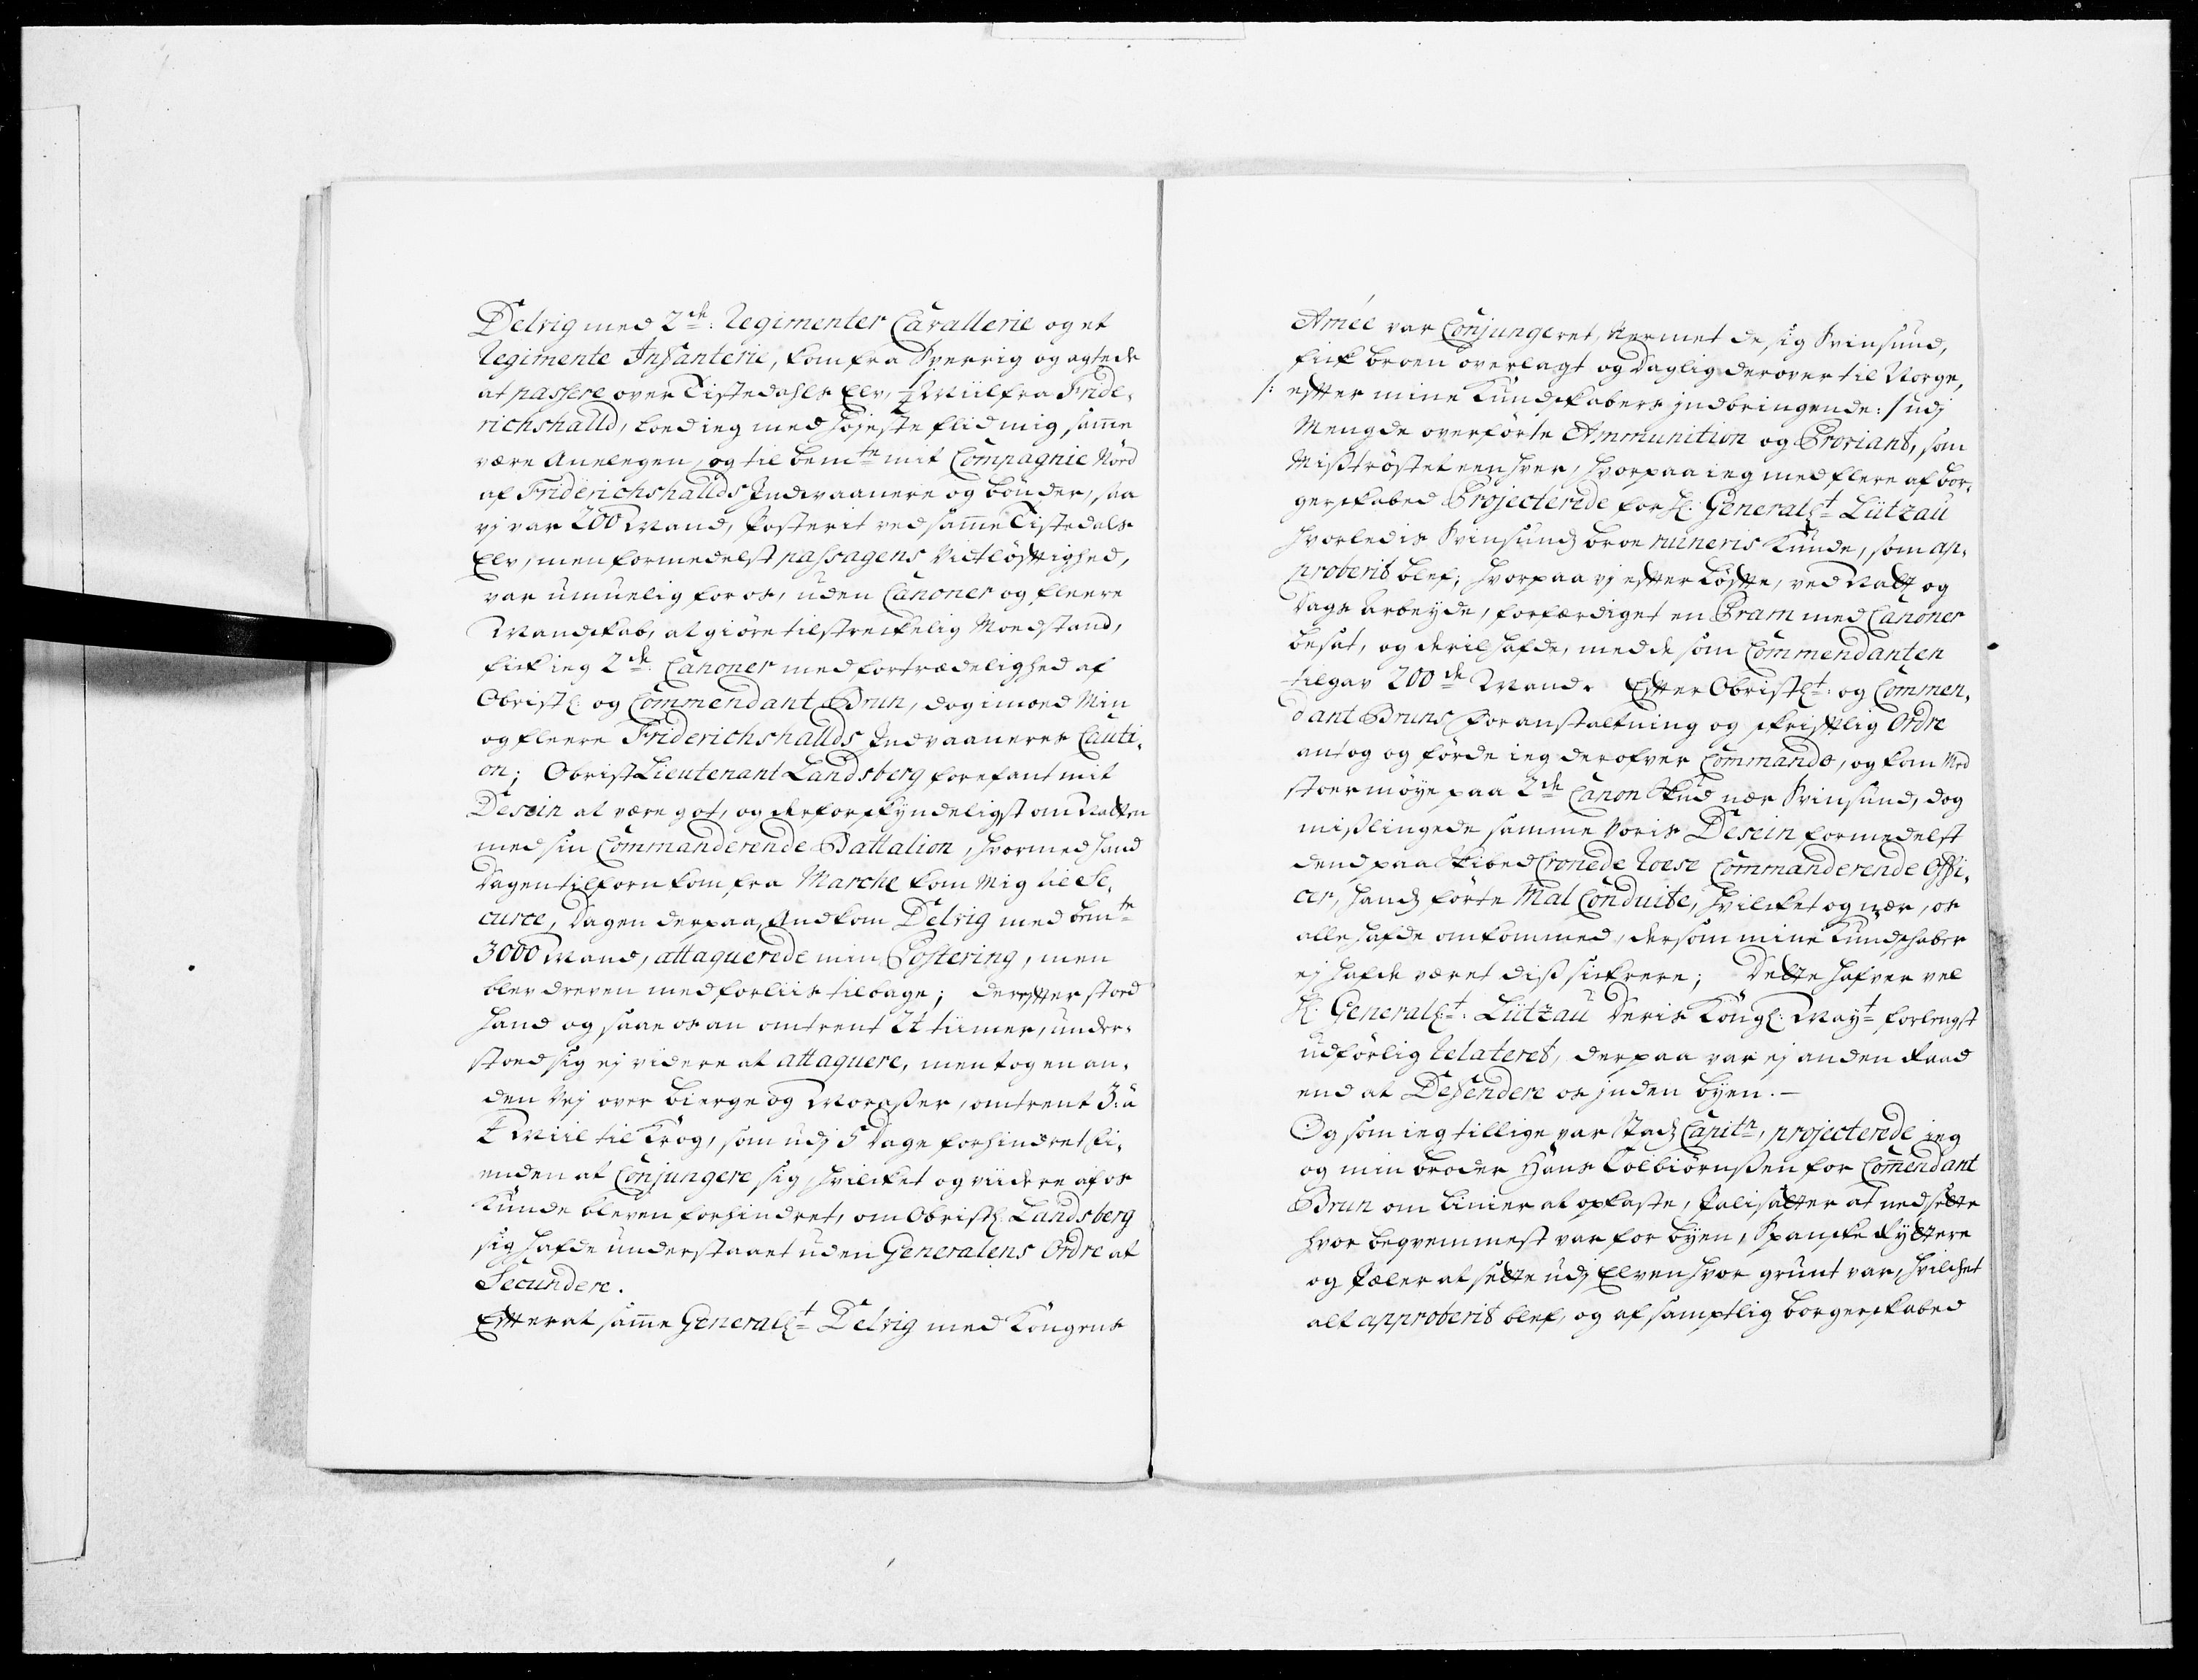 Delvig med 2de: Regimenter Cavallerie og et
Regimente Infanterie, kom fra Sverrig og agtede
at passere over Tistedahls Elv, ½ Miil fra Fride-
richshalld, loed ieg med højeste flid mig samme
være Anelegen, og til bemte mit Compagnie Nörd
af Friderichshallds Indvaanere og bönder, saa
vj var 200 Mand, Posterit ved samme Tistedals
Elv, men formedelst passagens Vitløftighed,
var umuelig for os, uden Canoner og fleere
Mandskab, at giöre tilstreckelig Moedstand,
fick ieg 2de: Canoner med fortrædelighed af
Obristl: og Commendant Brun, dog imoed Min
og fleere Friderichshallds Indvaaneres Cauti-
on; Obrist Lieutenant Landsberg forefant mit
Desein at være got, og derfor skyndeligst om Natten
med sin Commanderende Battalion, hvormed hand
Dagen tilforn kom fra Marche kom Mig til Se-
curce, Dagen derpaa, Andkom Delvig med bemte
3000 Mand, attaquerede min Postering, men
blev dreven med forliis tilbage; derefter stoed
hand og saae os an omtrent 24 tiimer, under-
stoed sig ej videre at attaquere, men tog en an-
den Vej over bierge og Moradser, omtrent 3: a
4 Miil til Krog, som udj 5 Dage forhindret fi-
enden at Conjungere sig, hvilcket og viidere af os
Kunde bleven forhindret, om Obristl: Landsberg
sig hafde understaaet uden Generalens Ordre at
Secundere.
Efter at samme Generallt Delvig med Kongens
Améé var Conjungeret, Nermet de sig Svinsund,
fick broen overlagt og Daglig derover til Norge,
/: efter mine Kundskabers jndbringende: / udj
Mengde overförte Ammunition og Proviant, som
Mißtröstet een hver, hvorpaa ieg med flere af bor-
gerskabed Projecterede for H: Generallt Lützau
hvorledis Svinsunds broe ruineris Kunde, som ap-
proberit blef, hvorpaa vj efter Löfte, ved Natt og
Dags Arbeyde, forfærdiget en Pram med Canoner
besat, og dertil hafde, med de som Commendanten
tilgav 200de Mand. Efter Obristlt: og Commen-
dant Bruns Foranstaltning og skriftlig Ordre
antog og förde ieg derofver Commando, og kom Med
stoer möye paa 2de Canon Skud nær Svinsund, dog
mißlingede samme voris Desein formedelst
dend paa Skibed Cronede Roese Commanderende Offi-
cer, hands förte Mal Conduite, hvilcket og nær, os
alle hafde omkommed, dersom mine Kundschaber
ej hafde været diß sickrere; Dette hafver vel
H: Generallt: Lützau Deris Kongl: Mayt forlengst
udförlig Relateret, derpaa var ej anden Raad
end at Defendere os jnden byen.—
Og som ieg tillige var Stads Capitn, projecterede ieg
og min broder Hans Colbiörnßen for Commendant
Brun om Linier at opkaste, Palisatter at nedsette
hvor beqvemmest var for byen, Spanske Ryttere
og Pæler at sette udj Elven hvor grunt var, hvilchet
alt approberit blef, og af samptlig borgerskabed